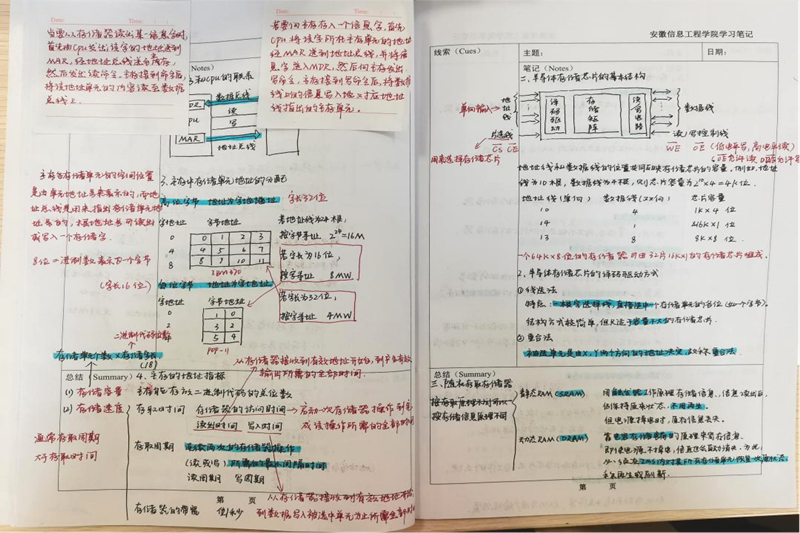 当要从存储器读出某一信息字时,
首先由CPU发出该字的地址送到
MAR,经地址总线送至主存,
然后发出读命令,主存接到命令后,
将该地址单元的内容读至数据
总线上。
若要向主存存入一个信息字,首先
CPU将该字所在主存单元的地址
经MAR送到地址总线,并将信
息字送入MDR,然后向主存发出
写命令,主存接到写命令后,将数据
线上的信息写入
线指出的主存单元。
(Notes)
和CPU的联系
MDR
数据总线
CPU
读
写
MAR
地址总线
3. 主存中存储单元地址的分配
高位字节 地址为字地址
字长32位
主存各存储单元的空间位置
是由单元地址号来表示的,而地
址总线是用来指出存储单元地
址号的,根据地址号可读出
或写入一个存储字。
8位二进制数表示为一个字节
(字长16位)
字地址 字节地址
0 0 1 2 3
4 4 5 6 7
8 8 9 10 11
IBM370
若地址线为24根,
按字节寻址 2²⁴=16M
若字长为16位
按字寻址 8MW
若字长为32位,
按字寻址 4MW
低位字节 地址为字地址
字地址 字节地址
0 1 0
2 3 2
4 5 4
PDP-11
存储单元个数×存储字长
(18)
总结(Summary)
4. 主存的技术指标
(1) 存储容量 主存能存放二进制代码的总位数
(2) 存储速度
存取时间 存储器的访问时间→启动一次存储器操作到完
成该操作所需的全部时间
读出时间 写入时间
存取周期 连续两次的存储器操作
(读或写)所需的最小间隔时间
读周期 写周期
通常存取周期
大于存取时间
从存储器接收到有效地址开始,到产生有效
输出所需的全部时间。
从存储器接收到有效地址开始
到数据写入被选中单元为止所需全部时间
存储器的带宽 位/秒
第 页
安徽信息工程学院学习笔记
线索(Cues)
主题:
日期:
笔记(Notes)
二、半导体存储芯片的基本结构
单向输入
地
址
线
译码驱动
存储矩阵
读写电路
数据线
片选线
CS CE
用来选择存储芯片
读/写控制线
WE OE (低电平写,高电平读)
地址线和数据线的位数共同反映存储芯片的容量,例如,地址
线为10根,数据线为4根,则芯片容量为2¹⁰×4=4K位.
地址线(单向) 数据线(双向) 芯片容量
10 4 1K×4 位
14 1 16K×1 位
13 8 8K×8 位
一个64K×8位的存储器可由32片16K×1的存储芯片组成。
2. 半导体存储芯片的译码驱动方式
①线选法
特点:一根字选择线,直接选中一个存储单元的各位(如一个字节).
结构方式较简单,但只适于容量不大的存储芯片.
②重合法
被选单元是由X、Y两个方向的地址决定,故称重合法
总结(Summary)
三、随机存取存储器
按存储信息原理不同
静态RAM(SRAM) 用触发器工作原理存储信息,信息读出后,
仍保持原来状态,不用再生。
但电源掉电时,原存信息丢失。
动态RAM(DRAM) 靠电容存储电荷的原理来寄存信息。
即使电源不掉电,信息也会自动消失。为此,
第 页